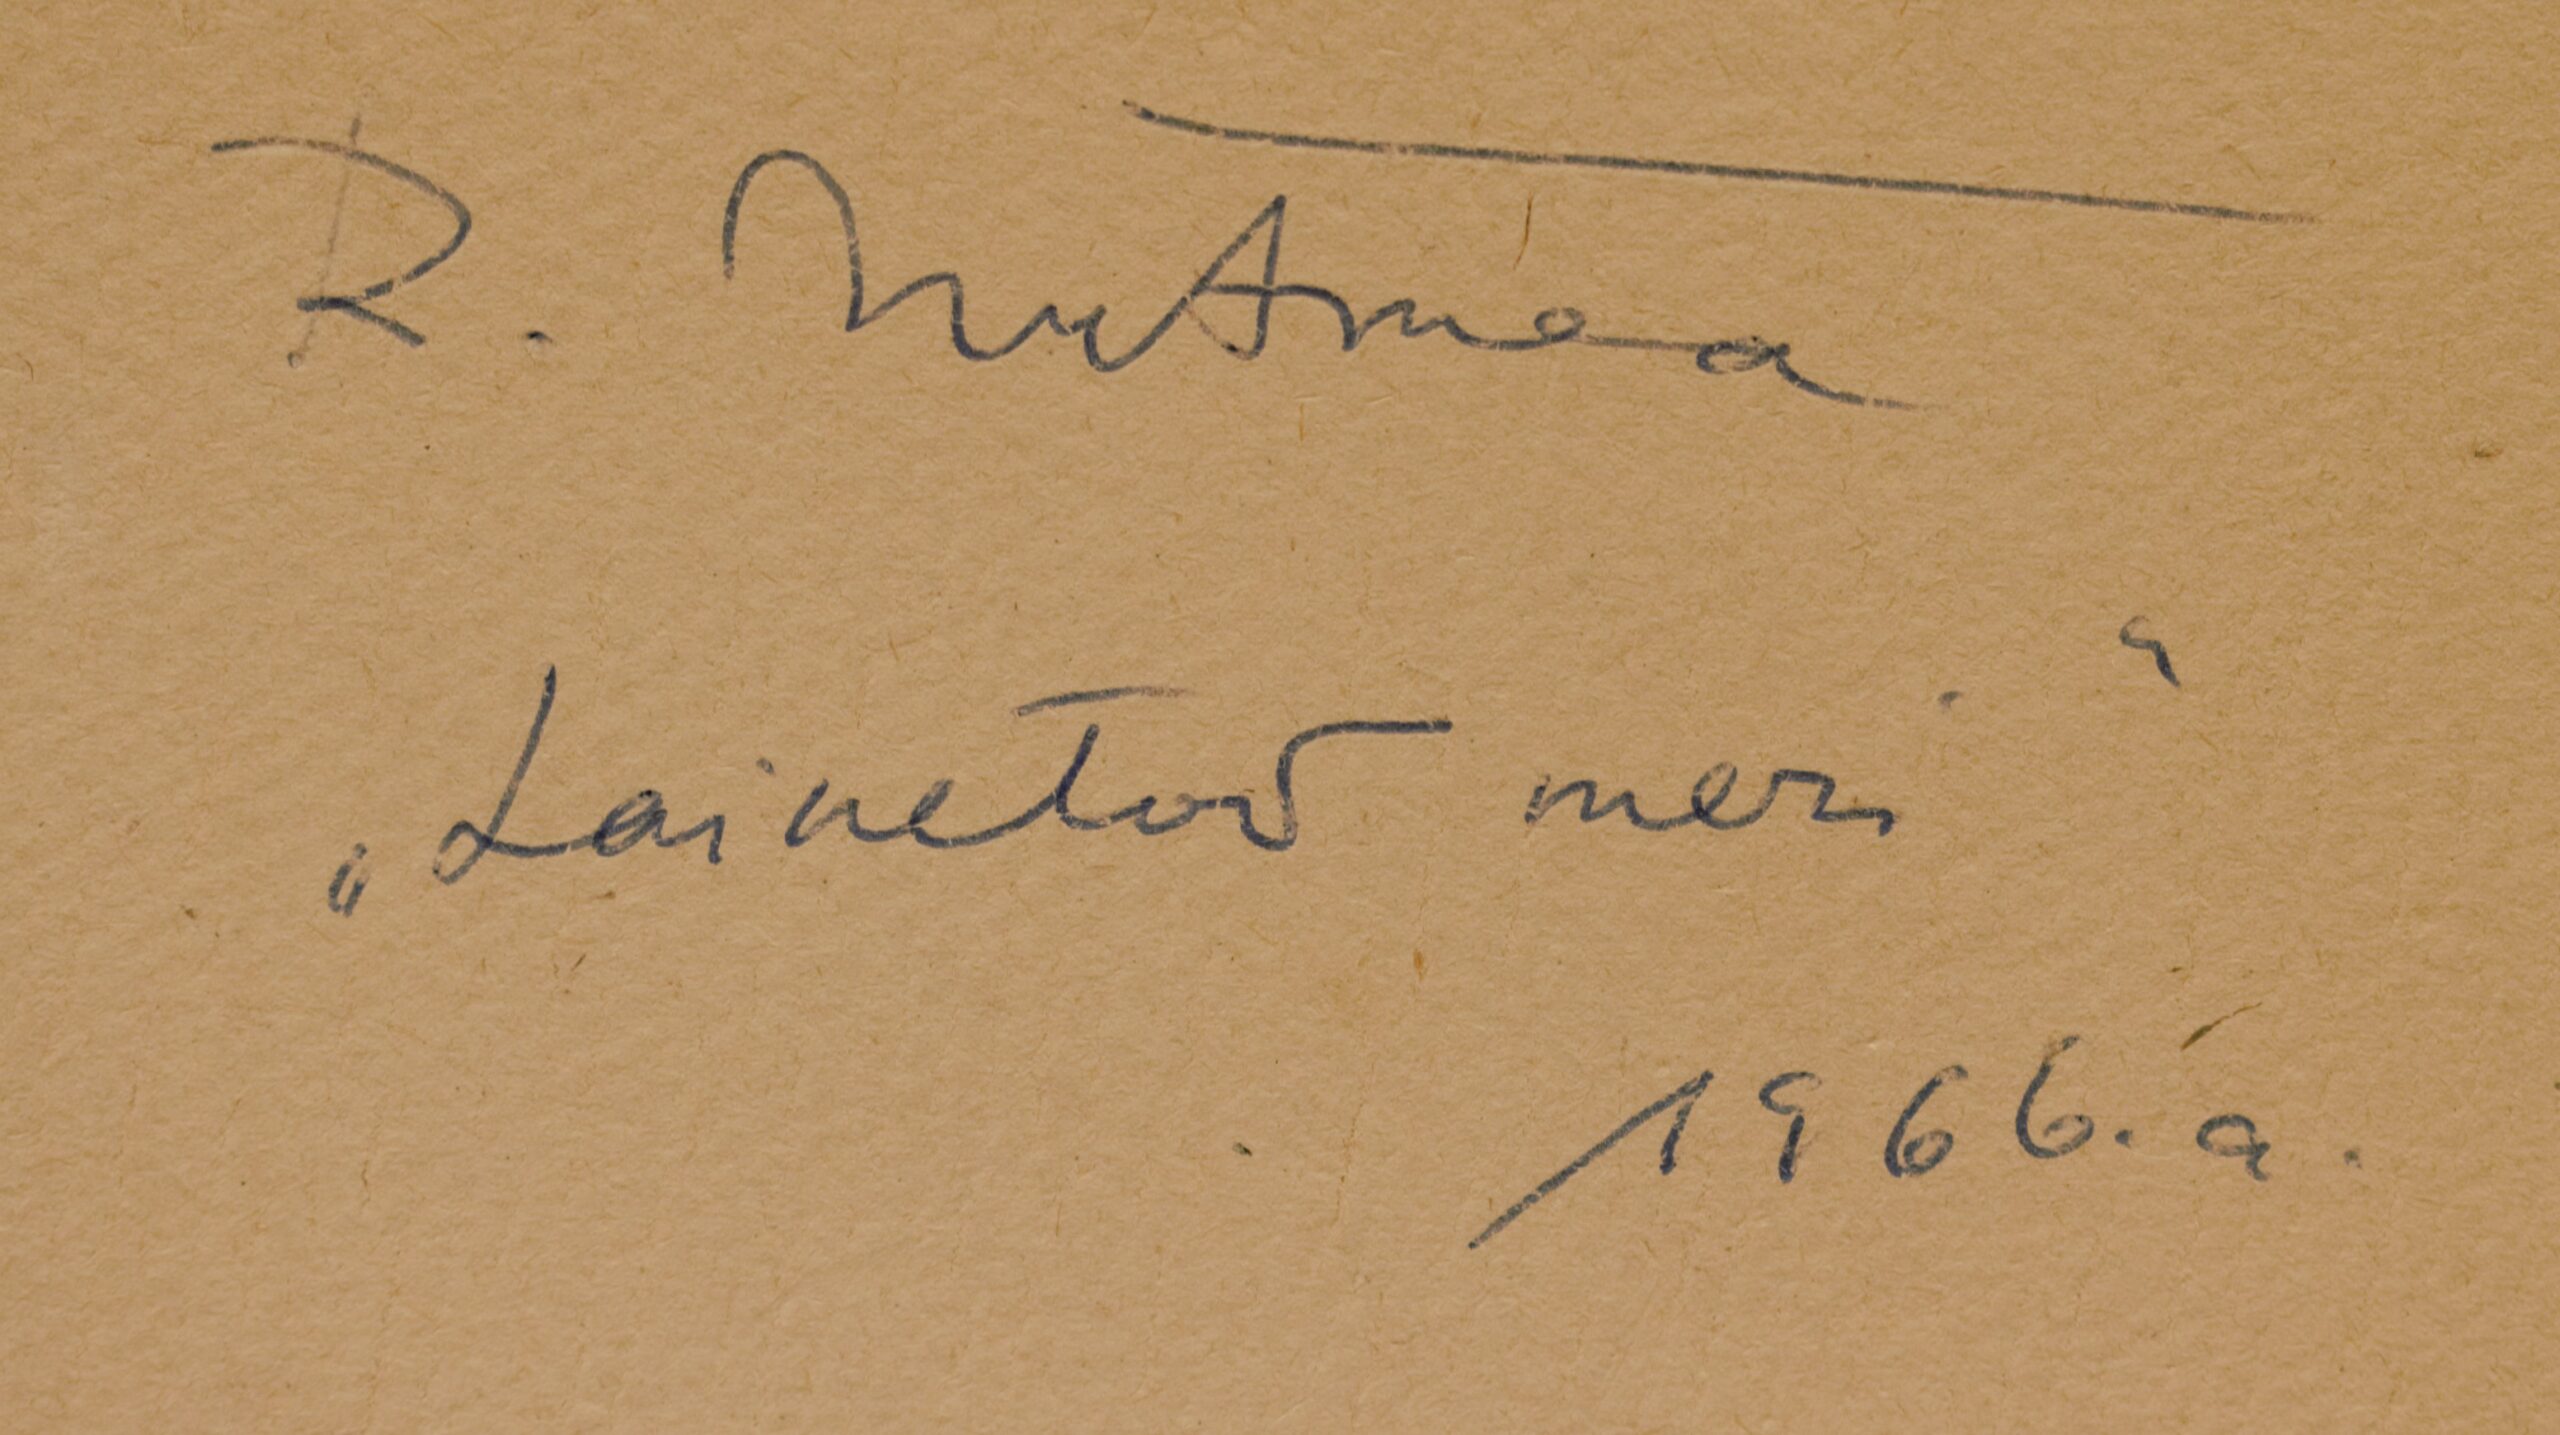 R. Uutmaa
„Lainetav meri“
1966. a.